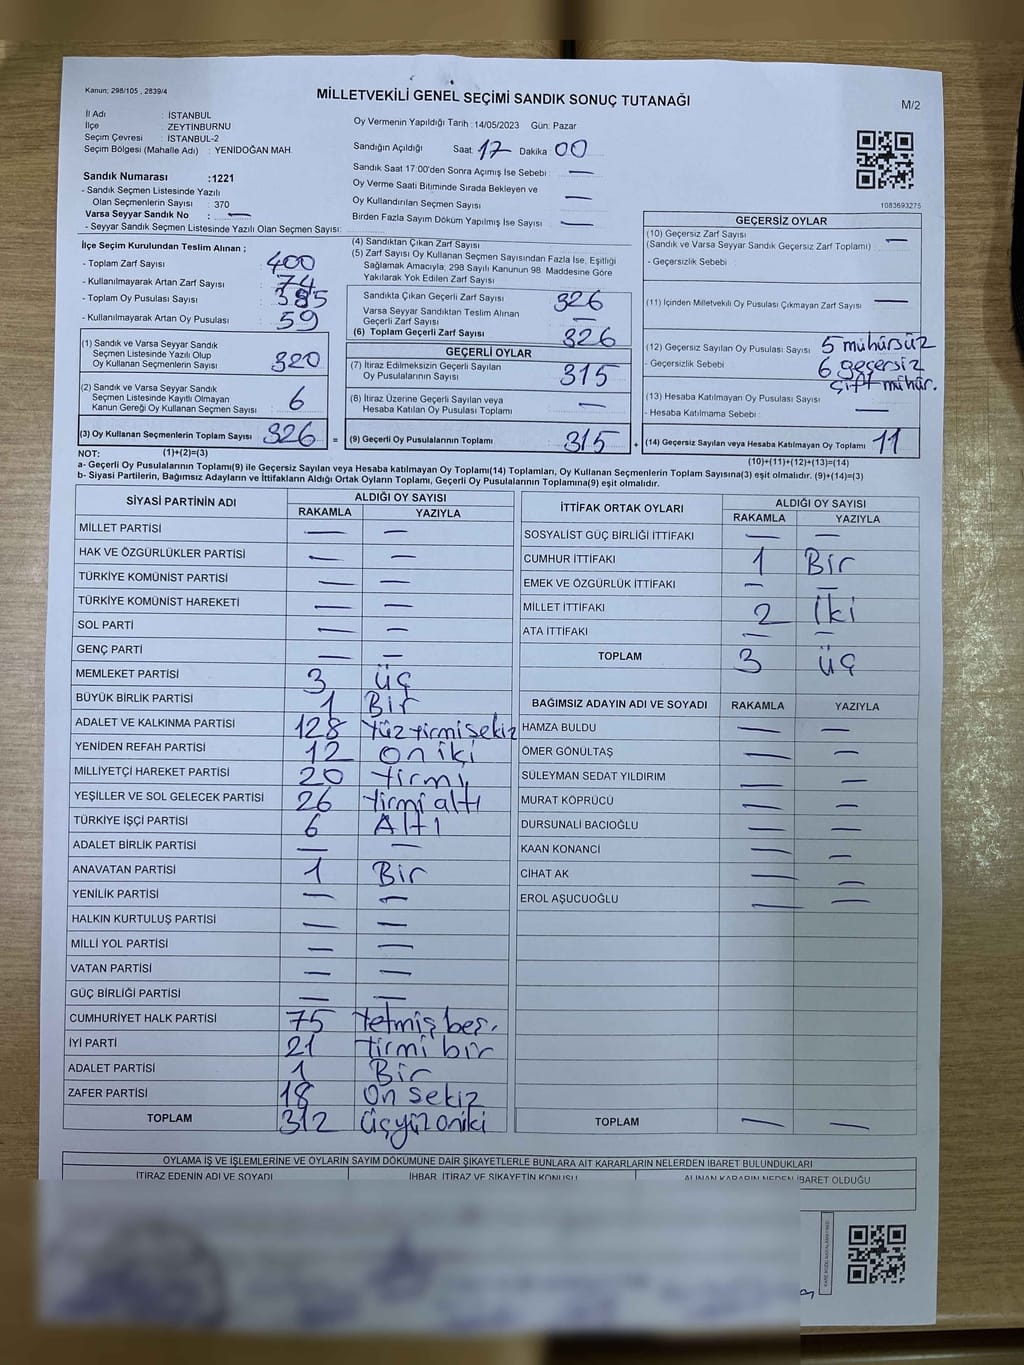 Kanun; 298/105 , 2839/4
MİLLETVEKİLİ GENEL SEÇİMİ SANDIK SONUÇ TUTANAĞI
M/2
İl Adı : İSTANBUL
İlçe : ZEYTINBURNU
Seçim Çevresi : İSTANBUL-2
Seçim Bölgesi (Mahalle Adı) : YENİDOĞAN MAH.
Oy Vermenin Yapıldığı Tarih : 14/05/2023 Gün: Pazar
Sandığın Açıldığı Saat: 17 Dakika 00
Sandık Saat 17:00'den Sonra Açımış İse Sebebi : —
Oy Verme Saati Bitiminde Sırada Bekleyen ve
Oy Kullandırılan Seçmen Sayısı : —
Birden Fazla Sayım Döküm Yapılmış İse Sayısı : —
1083693275
Sandık Numarası :1221
- Sandık Seçmen Listesinde Yazılı
Olan Seçmenlerin Sayısı : 370
Varsa Seyyar Sandık No : —
- Seyyar Sandık Seçmen Listesinde Yazılı Olan Seçmen Sayısı:
İlçe Seçim Kurulundan Teslim Alınan ;
- Toplam Zarf Sayısı : 400
- Kullanılmayarak Artan Zarf Sayısı : 74
- Toplam Oy Pusulası Sayısı : 385
- Kullanılmayarak Artan Oy Pusulası : 59
(1) Sandık ve Varsa Seyyar Sandık
Seçmen Listesinde Yazılı Olup
Oy Kullanan Seçmenlerin Sayısı 320
(2) Sandık ve Varsa Seyyar Sandık
Seçmen Listesinde Kayıtlı Olmayan
Kanun Gereği Oy Kullanan Seçmen Sayısı 6
(3) Oy Kullanan Seçmenlerin Toplam Sayısı 326 =
(4) Sandıktan Çıkan Zarf Sayısı
(5) Zarf Sayısı Oy Kullanan Seçmen Sayısından Fazla İse, Eşitliği
Sağlamak Amacıyla; 298 Sayılı Kanunun 98. Maddesine Göre
Yakılarak Yok Edilen Zarf Sayısı
Sandıkta Çıkan Geçerli Zarf Sayısı 326
Varsa Seyyar Sandıktan Teslim Alınan
Geçerli Zarf Sayısı —
(6) Toplam Geçerli Zarf Sayısı 326
GEÇERLİ OYLAR
(7) İtiraz Edilmeksizin Geçerli Sayılan
Oy Pusulalarının Sayısı 315
(8) İtiraz Üzerine Geçerli Sayılan veya
Hesaba Katılan Oy Pusulası Toplamı —
(9) Geçerli Oy Pusulalarının Toplamı 315 +
GEÇERSİZ OYLAR
(10) Geçersiz Zarf Sayısı
(Sandık ve Varsa Seyyar Sandık Geçersiz Zarf Toplamı) : —
- Geçersizlik Sebebi :
(11) İçinden Milletvekili Oy Pusulası Çıkmayan Zarf Sayısı —
(12) Geçersiz Sayılan Oy Pusulası Sayısı 5 mühürsüz
- Geçersizlik Sebebi : 6 geçersiz
çift mühür.
(13) Hesaba Katılmayan Oy Pusulası Sayısı
- Hesaba Katılmama Sebebi : —
(14) Geçersiz Sayılan veya Hesaba Katılmayan Oy Toplamı 11
NOT: (1)+(2)=(3)
(10)+(11)+(12)+(13)=(14)
a- Geçerli Oy Pusulalarının Toplamı(9) ile Geçersiz Sayılan veya Hesaba katılmayan Oy Toplamı(14) Toplamları, Oy Kullanan Seçmenlerin Toplam Sayısına(3) eşit olmalıdır. (9)+(14)=(3)
b- Siyasi Partilerin, Bağımsız Adayların ve İttifakların Aldığı Ortak Oyların Toplamı, Geçerli Oy Pusulalarının Toplamına(9) eşit olmalıdır.
SİYASİ PARTİNİN ADI ALDIĞI OY SAYISI
RAKAMLA YAZIYLA
MİLLET PARTİSİ — —
HAK VE ÖZGÜRLÜKLER PARTİSİ — —
TÜRKİYE KOMÜNİST PARTİSİ — —
TÜRKİYE KOMÜNİST HAREKETİ — —
SOL PARTİ — —
GENÇ PARTİ — —
MEMLEKET PARTİSİ 3 üç
BÜYÜK BİRLİK PARTİSİ 1 Bir
ADALET VE KALKINMA PARTİSİ 128 Yüzyirmisekiz
YENİDEN REFAH PARTİSİ 12 on iki
MİLLİYETÇİ HAREKET PARTİSİ 20 Yirmi
YEŞİLLER VE SOL GELECEK PARTİSİ 26 Yirmi altı
TÜRKİYE İŞÇİ PARTİSİ 6 Altı
ADALET BİRLİK PARTİSİ — —
ANAVATAN PARTİSİ 1 Bir
YENİLİK PARTİSİ — —
HALKIN KURTULUŞ PARTİSİ — —
MİLLİ YOL PARTİSİ — —
VATAN PARTİSİ — —
GÜÇ BİRLİĞİ PARTİSİ — —
CUMHURİYET HALK PARTİSİ 75 Yetmiş beş.
İYİ PARTİ 21 Yirmi bir
ADALET PARTİSİ 1 Bir
ZAFER PARTİSİ 18 On sekiz
TOPLAM 312 üçyüz oniki
İTTİFAK ORTAK OYLARI ALDIĞI OY SAYISI
RAKAMLA YAZIYLA
SOSYALİST GÜÇ BİRLİĞİ İTTİFAKI — —
CUMHUR İTTİFAKI 1 Bir
EMEK VE ÖZGÜRLÜK İTTİFAKI — —
MİLLET İTTİFAKI 2 iki
ATA İTTİFAKI — —
TOPLAM 3 üç
BAĞIMSIZ ADAYIN ADI VE SOYADI RAKAMLA YAZIYLA
HAMZA BULDU — —
ÖMER GÖNÜLTAŞ — —
SÜLEYMAN SEDAT YILDIRIM — —
MURAT KÖPRÜCÜ — —
DURSUNALİ BACIOĞLU — —
KAAN KONANCİ — —
CİHAT AK — —
EROL AŞUCUOĞLU — —
TOPLAM — —
OYLAMA İŞ VE İŞLEMLERINE VE OYLARIN SAYIM DÖKÜMÜNE DAİR ŞİKAYETLERLE BUNLARA AİT KARARLARIN NELERDEN İBARET BULUNDUKLARI
İTİRAZ EDENİN ADI VE SOYADI İHBAR, İTİRAZ VE ŞİKAYETİN KONUSU ALINAN KARARIN NEDEN İBARET OLDUĞU